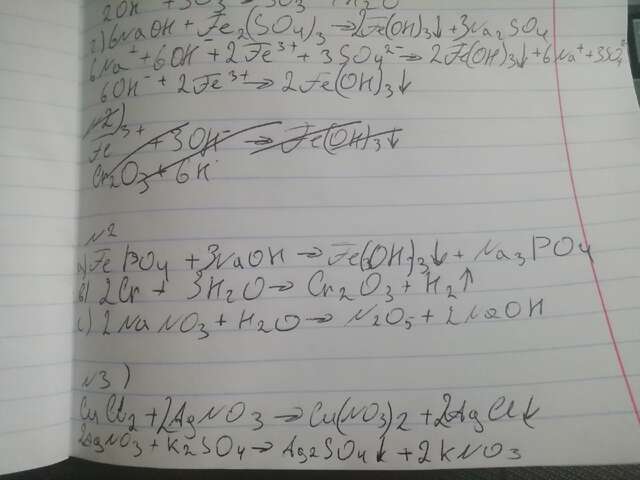 2OH
г) 6NaOH + Fe₂(SO₄)₃ → 2Fe(OH)₃↓ + 3Na₂SO₄
6Na⁺ + 6OH⁻ + 2Fe³⁺ + 3SO₄²⁻ → 2Fe(OH)₃↓ + 6Na⁺ + 3SO₄²⁻
6OH⁻ + 2Fe³⁺ → 2Fe(OH)₃↓
№2)
Fe³⁺ + 3OH⁻ → Fe(OH)₃↓
Cr₂O₃ + 6H
№2
FePO₄ + 3NaOH → Fe(OH)₃↓ + Na₃PO₄
в) 2Cr + 3H₂O → Cr₂O₃ + H₂↑
с) 2NaNO₃ + H₂O → N₂O₅ + 2NaOH
№3)
CuCl₂ + 2AgNO₃ → Cu(NO₃)₂ + 2AgCl↓
2AgNO₃ + K₂SO₄ → Ag₂SO₄↓ + 2KNO₃